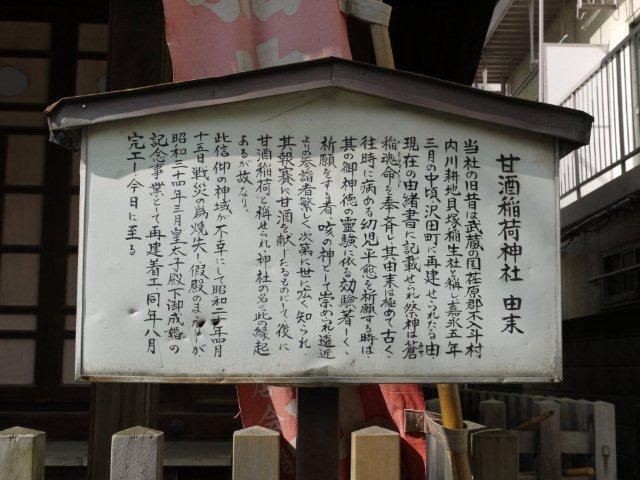 甘酒稲荷神社 由来
当社の旧昔は武蔵の国荏原郡不入斗村
内川耕地貝塚稲生社と稱し嘉永五年
三月の廿頃、沢田町に再建せられたる由
現在の由緒書に記載せられ祭神は蒼
稲魂命を奉斉し其由来は極めて古く、
往時に病める幼児平愈を祈願する時は
其の御神徳の霊験に依る効験著しく、
祈願をする者咳の神として崇められ遠近
よりの参詣者繁く次第に世に広く知られ、
其報賽に甘酒を献じたるものにて後に
甘酒稲荷と稱せられ神社の名も此の縁起
あるが故なり
此信仰の神域が不幸にして昭和二十年四月
十五日戦災の為焼失し假殿のまゝだーが
昭和三十四年三月皇太子殿下御成婚の
記念事業として再建着工同年八月
完工し今日に至る